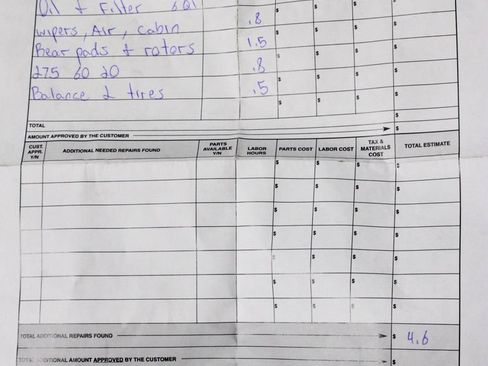 Oil + Filter 6 Qt
wipers, Air, cabin .8
Rear pads + rotors 1.5
275 60 20 .8
Balance 2 tires .5
$ $ $ $
TOTAL $
AMOUNT APPROVED BY THE CUSTOMER $
CUST. APPR. Y/N ADDITIONAL NEEDED REPAIRS FOUND PARTS AVAILABLE Y/N LABOR HOURS PARTS COST LABOR COST TAX & MATERIALS COST TOTAL ESTIMATE
$ $ $ $
$ $ $ $
$ $ $ $
$ $ $ $
$ $ $ $
$ $ $ $
$ $ $ $
TOTAL ADDITIONAL REPAIRS FOUND $ 4.6
TOTAL ADDITIONAL AMOUNT APPROVED BY THE CUSTOMER $